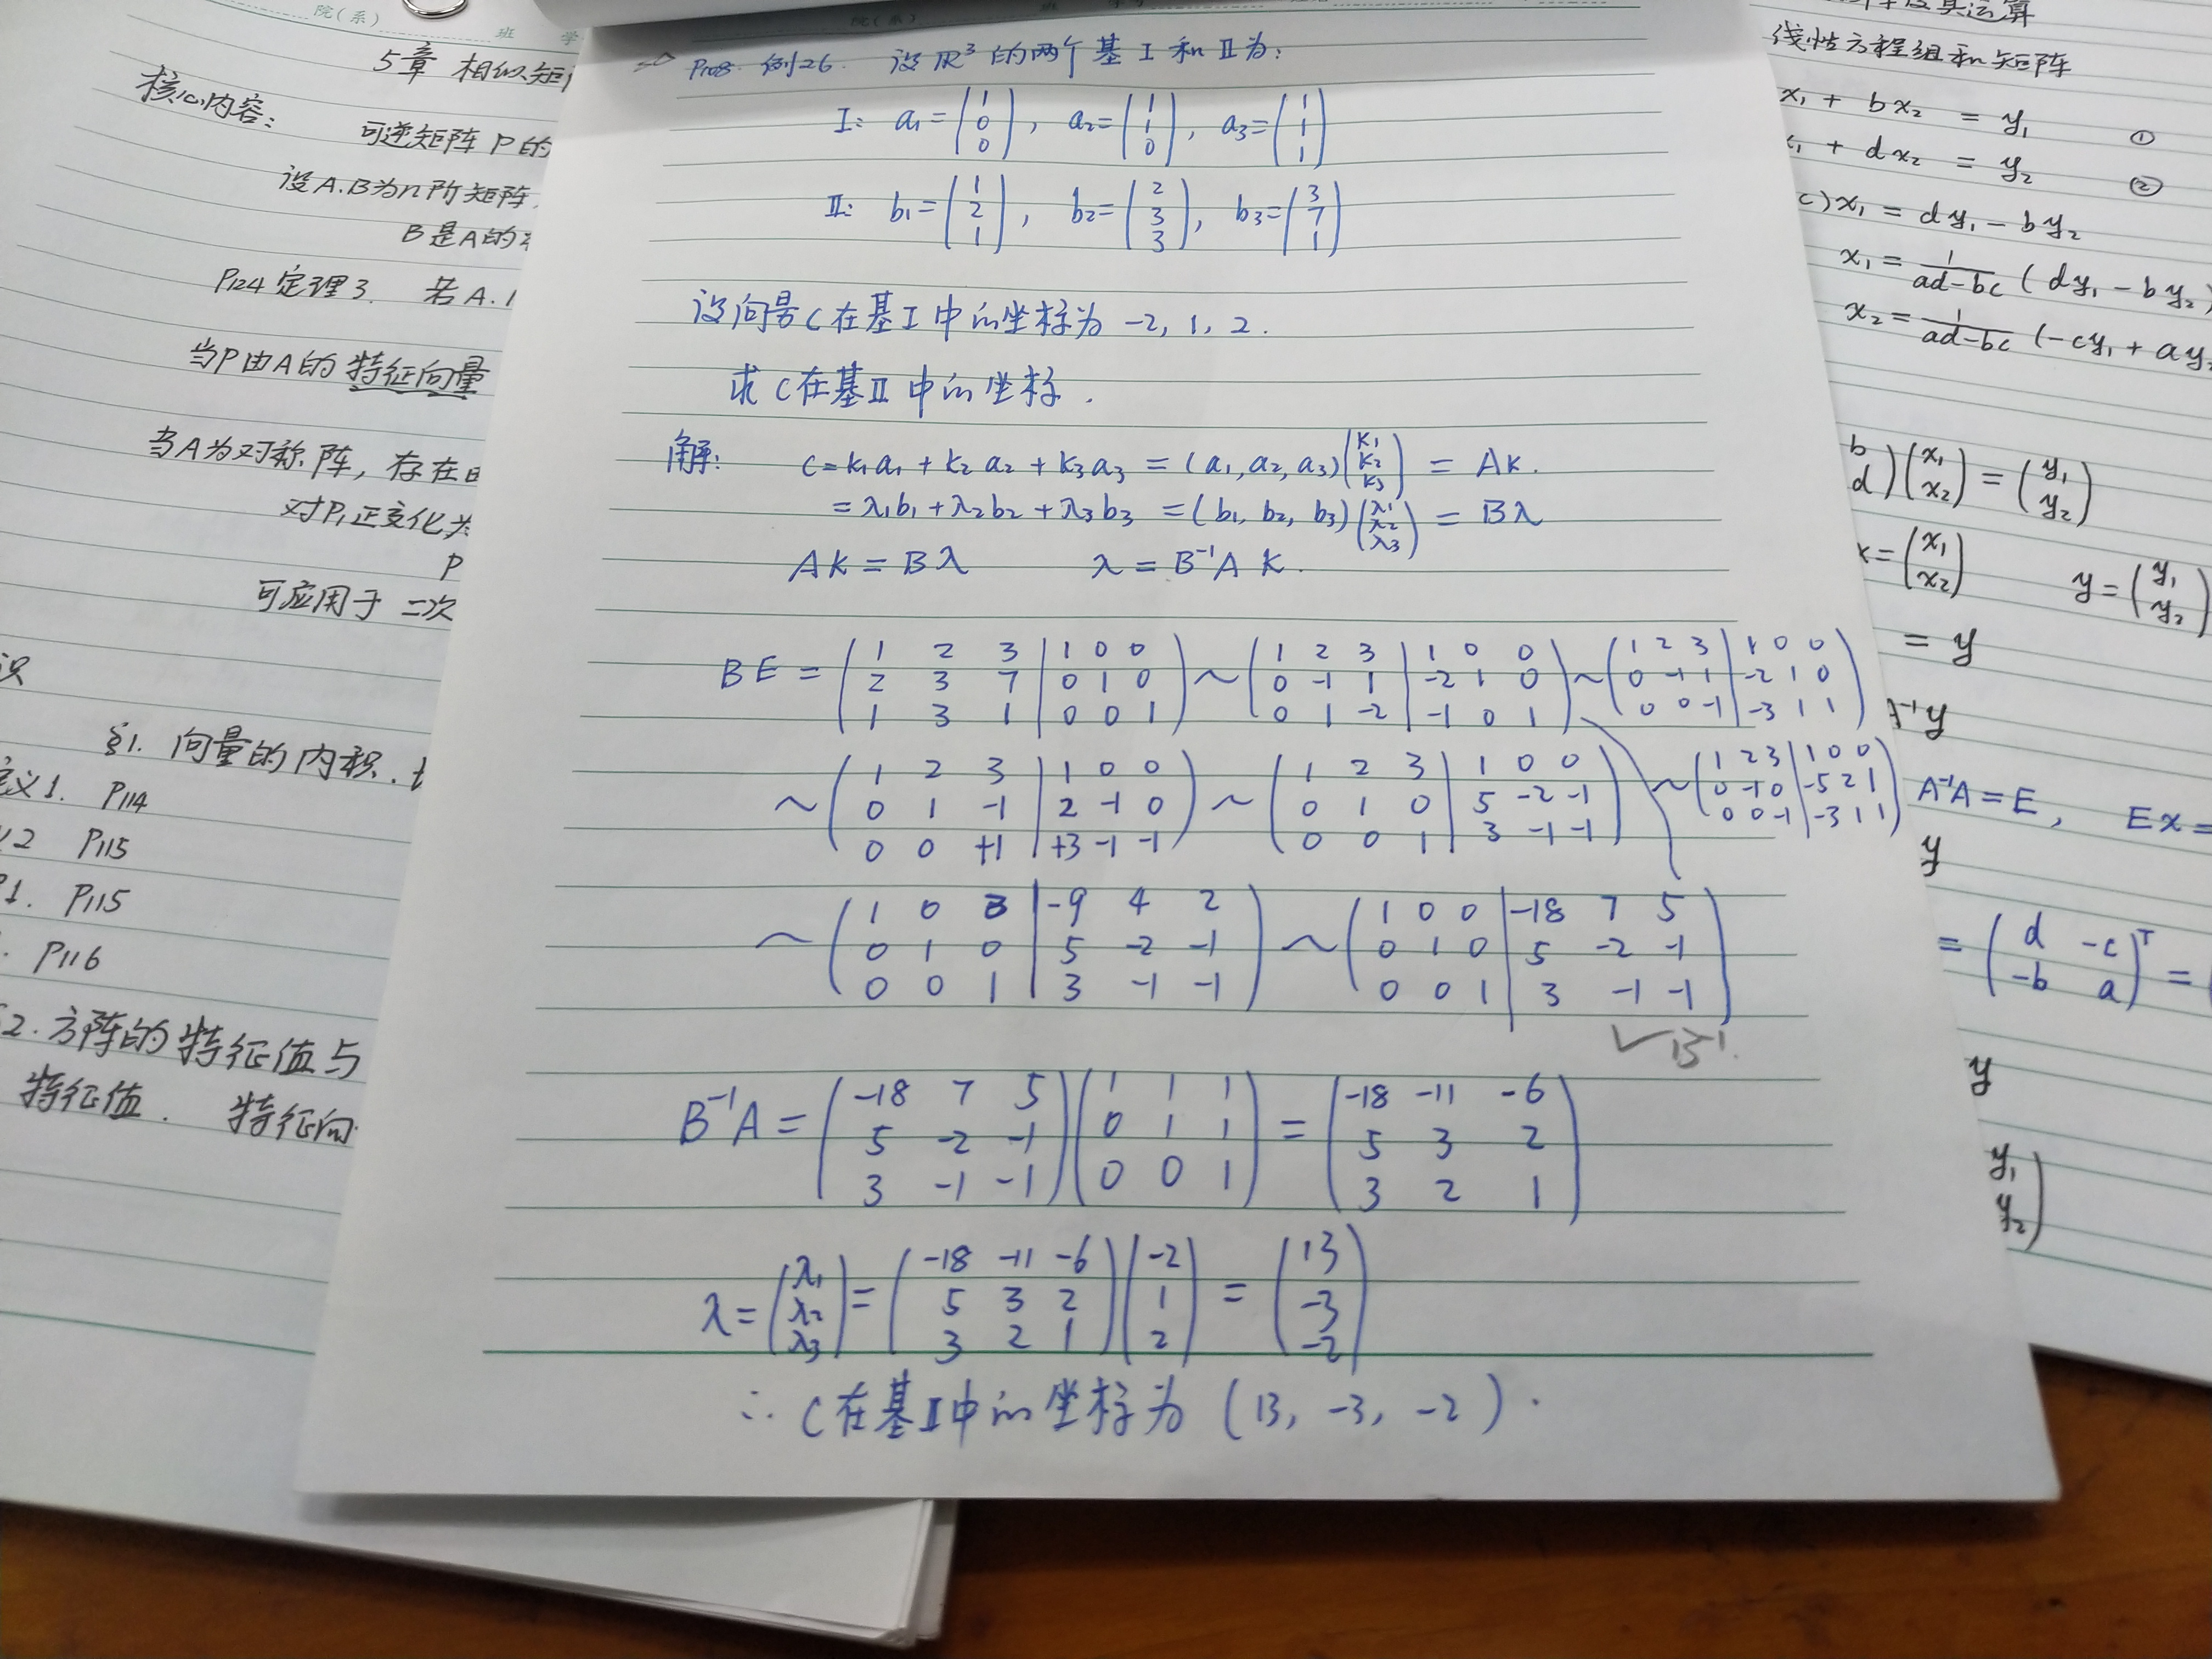 院(系)
班 学
5章 相似矩
核心内容:
可逆矩阵 P的
设A.B为n阶矩阵
B是A的
P124 定理3. 若A.
当P由A的 特征向量
当A为对称阵, 存在
对P,正交化为
P
可应用于 二次
识
§1. 向量的内积.
义1. P114
2 P115
1. P115
P116
2. 方阵的特征值与
特征值. 特征向
院(系) 班
P108 例26. 设 ℝ³ 的两个基 I 和 II 为:
I: a₁=(1 0 0), a₂=(1 1 0), a₃=(1 1 1)
II: b₁=(1 2 1), b₂=(2 3 3), b₃=(3 7 1)
设向量C在基I中的坐标为 -2, 1, 2.
求 C在基II中的坐标.
解: C=k₁a₁+k₂a₂+k₃a₃=(a₁,a₂,a₃)(k₁ k₂ k₃)=Ak.
=λ₁b₁+λ₂b₂+λ₃b₃=(b₁,b₂,b₃)(λ₁ λ₂ λ₃)=Bλ
Ak=Bλ λ=B⁻¹A k.
BE = ( 1 2 3 | 1 0 0 ) ~ ( 1 2 3 | 1 0 0 ) ~ ( 1 2 3 | 1 0 0 )
( 2 3 7 | 0 1 0 ) ( 0 -1 1 | -2 1 0 ) ( 0 -1 1 | -2 1 0 )
( 1 3 1 | 0 0 1 ) ( 0 1 -2 | -1 0 1 ) ( 0 0 -1 | -3 1 1 )
~ ( 1 2 3 | 1 0 0 ) ~ ( 1 2 3 | 1 0 0 ) ~ ( 1 2 3 | 1 0 0 )
( 0 1 -1 | 2 -1 0 ) ( 0 1 0 | 5 -2 -1 ) ( 0 -1 0 | -5 2 1 )
( 0 0 +1 | +3 -1 -1 ) ( 0 0 1 | 3 -1 -1 ) ( 0 0 -1 | -3 1 1 )
~ ( 1 0 3 | -9 4 2 ) ~ ( 1 0 0 | -18 7 5 )
( 0 1 0 | 5 -2 -1 ) ( 0 1 0 | 5 -2 -1 )
( 0 0 1 | 3 -1 -1 ) ( 0 0 1 | 3 -1 -1 )
✓B⁻¹.
B⁻¹A = ( -18 7 5 ) ( 1 1 1 ) = ( -18 -11 -6 )
( 5 -2 -1 ) ( 0 1 1 ) ( 5 3 2 )
( 3 -1 -1 ) ( 0 0 1 ) ( 3 2 1 )
λ = ( λ₁ ) = ( -18 -11 -6 ) ( -2 ) = ( 13 )
( λ₂ ) ( 5 3 2 ) ( 1 ) ( -3 )
( λ₃ ) ( 3 2 1 ) ( 2 ) ( -2 )
∴ C在基II中的坐标为 (13, -3, -2).
及其运算
线性方程组和矩阵
x₁ + bx₂ = y₁ ①
x₁ + dx₂ = y₂ ②
c)x₁ = dy₁ - by₂
x₁ = 1/(ad-bc) (dy₁ - by₂)
x₂ = 1/(ad-bc) (-cy₁ + ay₂
b ) ( x₁ ) = ( y₁ )
d ) ( x₂ ) ( y₂ )
x = ( x₁ ) y = ( y₁ )
( x₂ ) ( y₂ )
= y
A⁻¹y
A⁻¹A = E, Ex =
y
= ( d -c )ᵀ =
( -b a )
y
y₁
y₂